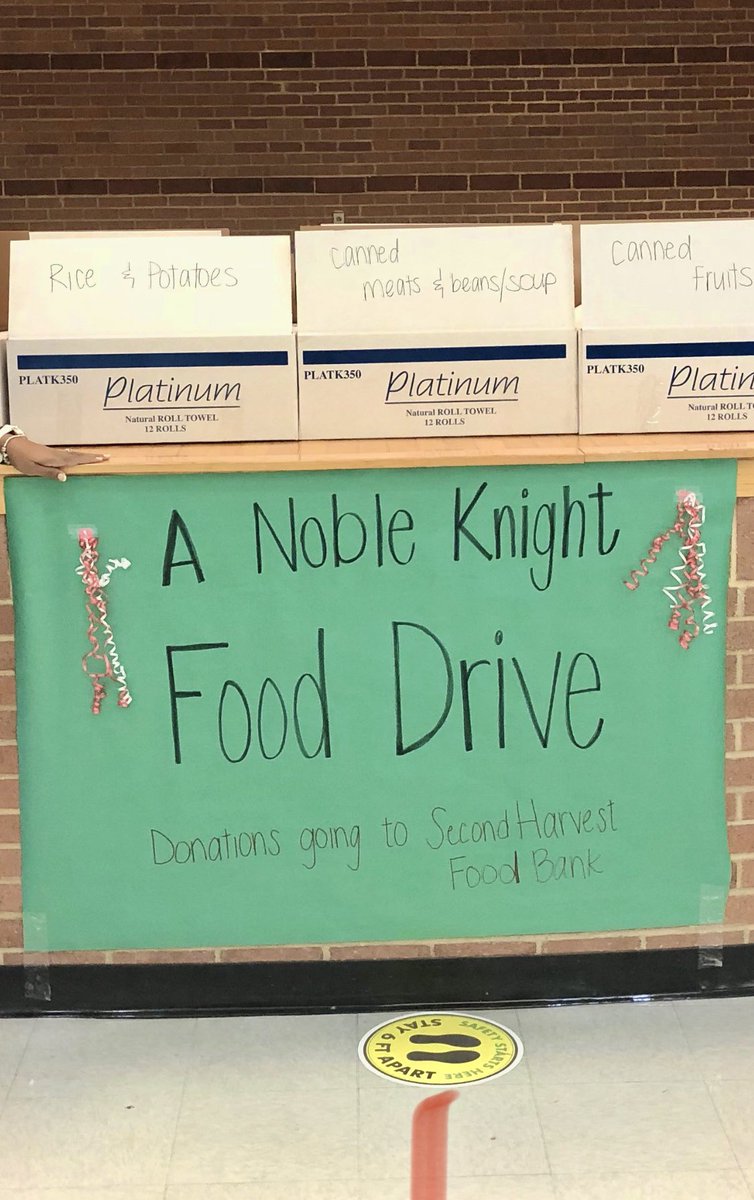 Rice & Potatoes
canned
meats & beans/soup
canned
fruits
PLATK350
Platinum
Natural ROLL TOWEL
12 ROLLS
PLATK350
Platinum
Natural ROLL TOWEL
12 ROLLS
PLATK350
Platin
Natural ROLL
12 ROLLS
A Noble Knight
Food Drive
Donations going to Second Harvest
Food Bank
SAFETY STARTS HERE
STAY 6 FT APART